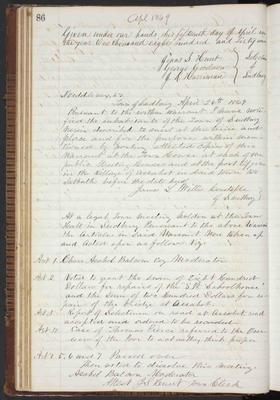 86
Apl 1869
Given under our hands this fifteenth day of April in
the year One thousand eight hundred and sixty nine
Jonas S. Hunt
George Goodnow
J. P. Harriman
Selectmen
of
Sudbury
Middlesex, ss.
Town of Sudbury April 24th 1869
Pursuant to the within Warrant I have noti-
fied the inhabitants of the Town of Sudbury
herein described to meet at the time and
place and for the purposes within men-
tioned by posting attested copies of this
Warrant at the Town House at each of the
public Meeting houses and at the post office
in the Village of Assabet and
Sabbath before the date
James L. Willis Constable
of Sudbury
At a legal Town meeting holden at the Town
Hall in Sudbury Pursuant to the above Warrant
the Articles in said Warrant were taken up
and Acted upon as follows Viz.
Art 1. Chose Asahel Balcom Esq Moderator
Art 2. Voted to grant the sum of Eight Hundred
Dollars for repairs of the S.W. Schoolhouse
and the sum of two hundred Dollars for re-
pairs of the bridge at Assabet.
Art 3. Report of Selectmen on road at Assabet read
accepted and ordered to be recorded
Art 4. Case of Thomas Pierce referred to the Over-
seers of the Poor to act as they think proper
Art's 5. 6 and 7. Passed over
Then voted to dissolve this meeting.
Asahel Balcom Moderator
Attest J. S. Hunt Town Clerk